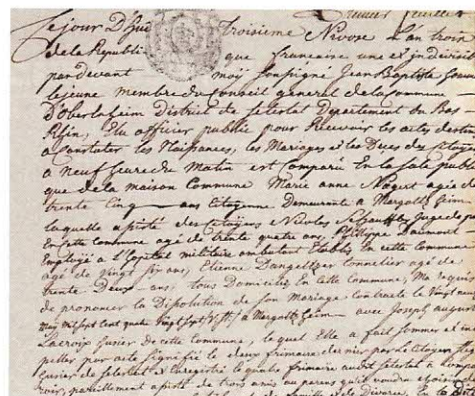 premier feuillet
Le jour D'hui troisieme Nivose l'an trois
de la Republi que francaine une et jndivisib
pardevant moij sousigné Jean Baptiste
Lejeune membre du Conseil general de la Commune
D'oberleheim District de selestat Departement du Bas
Rhin, Elu officier public pour Recevoir les actes destin
a Constater les Naissances, les Mariages et les Deces des Citoyens
a neuf heure du Matin est Comparu En la sale publi
que de la maison Commune Marie anne Nagert agée de
trente Cinq ans Citoyenne Demeurante a Margoltzheim
laquelle assisté des Citoyens Nicolas Schauffler Juge de paix
En cette Commune agé de trente quatre ans, Philippe Daumont
Employé a l'hopital militaire ambulant Etablis en cette Commune
agé de Vingt six ans, Etienne Dangeltzer tonnelier agé de
trente Deux ans, tous Domiciliés En Cette Commune, Ma requis
de prononcer la Dissolution de son Mariage Contracté le Vingt neuf
May Mil sept cent quatre Vingt sept a Margoltzheim avec Joseph august
Lacroix husier de cette Commune, lequel Elle a fait sommer et in
peller par acte signifié le deux frimaire dernier par le Citoyen
husier de selestat Enregistré le quatre frimaire audit selestat a
voir, pareillement assisté de trois amis ou parens qu'il voudra choisir
de famille de Divorce, En